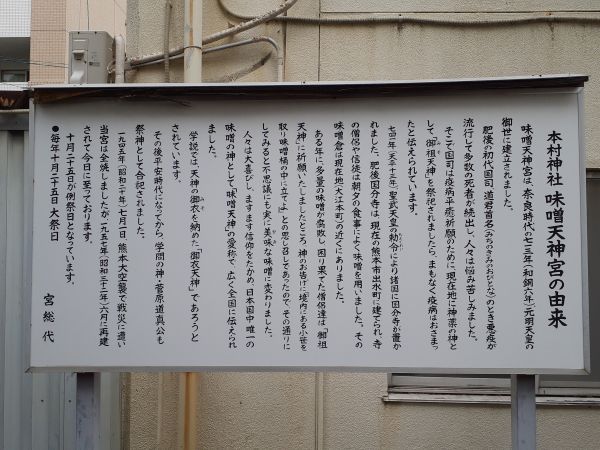 本村神社 味噌天神宮の由来
味噌天神宮は、奈良時代の七一三年(和銅六年)元明天皇の
御世に建立されました。
肥後の初代国司、道君首名(みちのきみのおびとな)のとき悪疫が
流行して多数の死者が続出し、人々は悩み苦しみました。
そこで国司は疫病平癒祈願のために、現在地に神薬の神と
して「御祖天神」を祭祀されましたら、まもなく疫病はおさまっ
たと伝えられています。
七四一年(天平十三年)聖武天皇の勅令により諸国に国分寺が置か
れました。肥後国分寺は、現在の熊本市出水町に建てられ、寺
の僧侶や信徒は朝夕の食事によく味噌を用いました。その
味噌倉は現在地(大江本町)の近くにありました。
ある年に、多量の味噌が腐敗し、困り果てた僧侶達は「御祖
天神」に祈願いたしましたところ、神のお告げに境内にある小笹を
取り味噌桶の中に立てよ」との思し召しであったので、その通りに
してみると不思議にも実に美味な味噌に変わりました。
人々は大喜びし、ますます信仰をたかめ、日本国中唯一の
味噌の神として「味噌天神」の愛称で、広く全国に伝えられ
ました。
学説では、天神の御衣を納めた「御衣天神」であろうと
されています。
その後平安時代になってから、学問の神・菅原道真公も
祭神として合祀されました。
一九四五年(昭和二十年)七月一日 熊本大空襲で戦災に遭い
当宮は全焼しましたが、一九五七年(昭和三十二年)六月に再建
されて今日に至っております。
十月二十五日が例祭日となっています。
●毎年十月二十五日 大祭日
宮総代